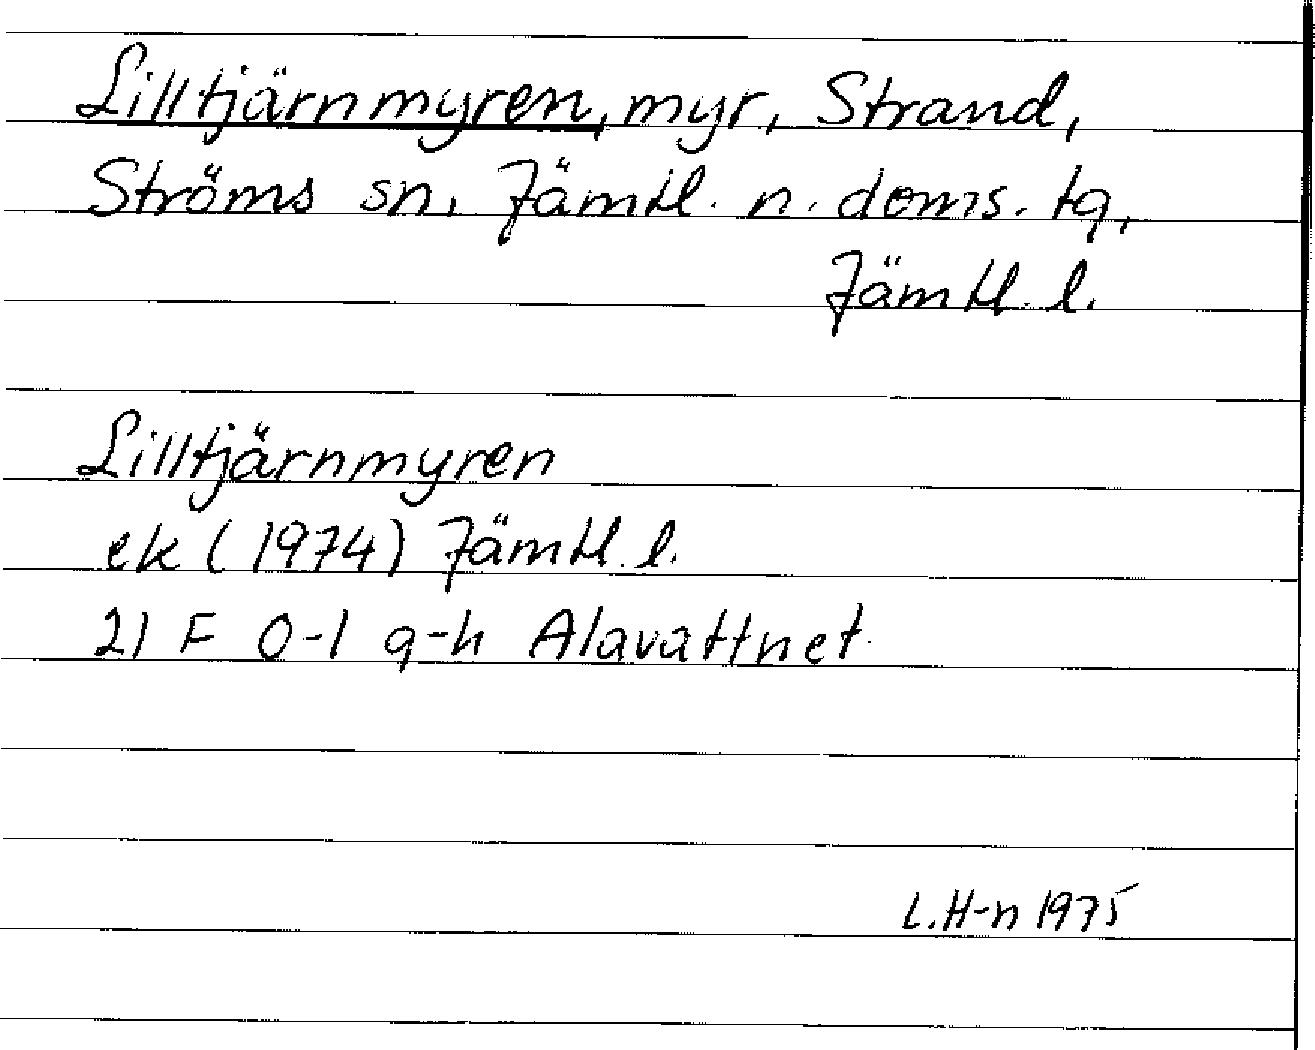 Lilltjärnmyren, myr, Strand,
Ströms sn, Jämtl. n. doms. tg,
Jämtl. l.
Lilltjärnmyren
ek (1974) Jämtl. l.
21 F 0-1 g-h Alavattnet
L.H-n 1975